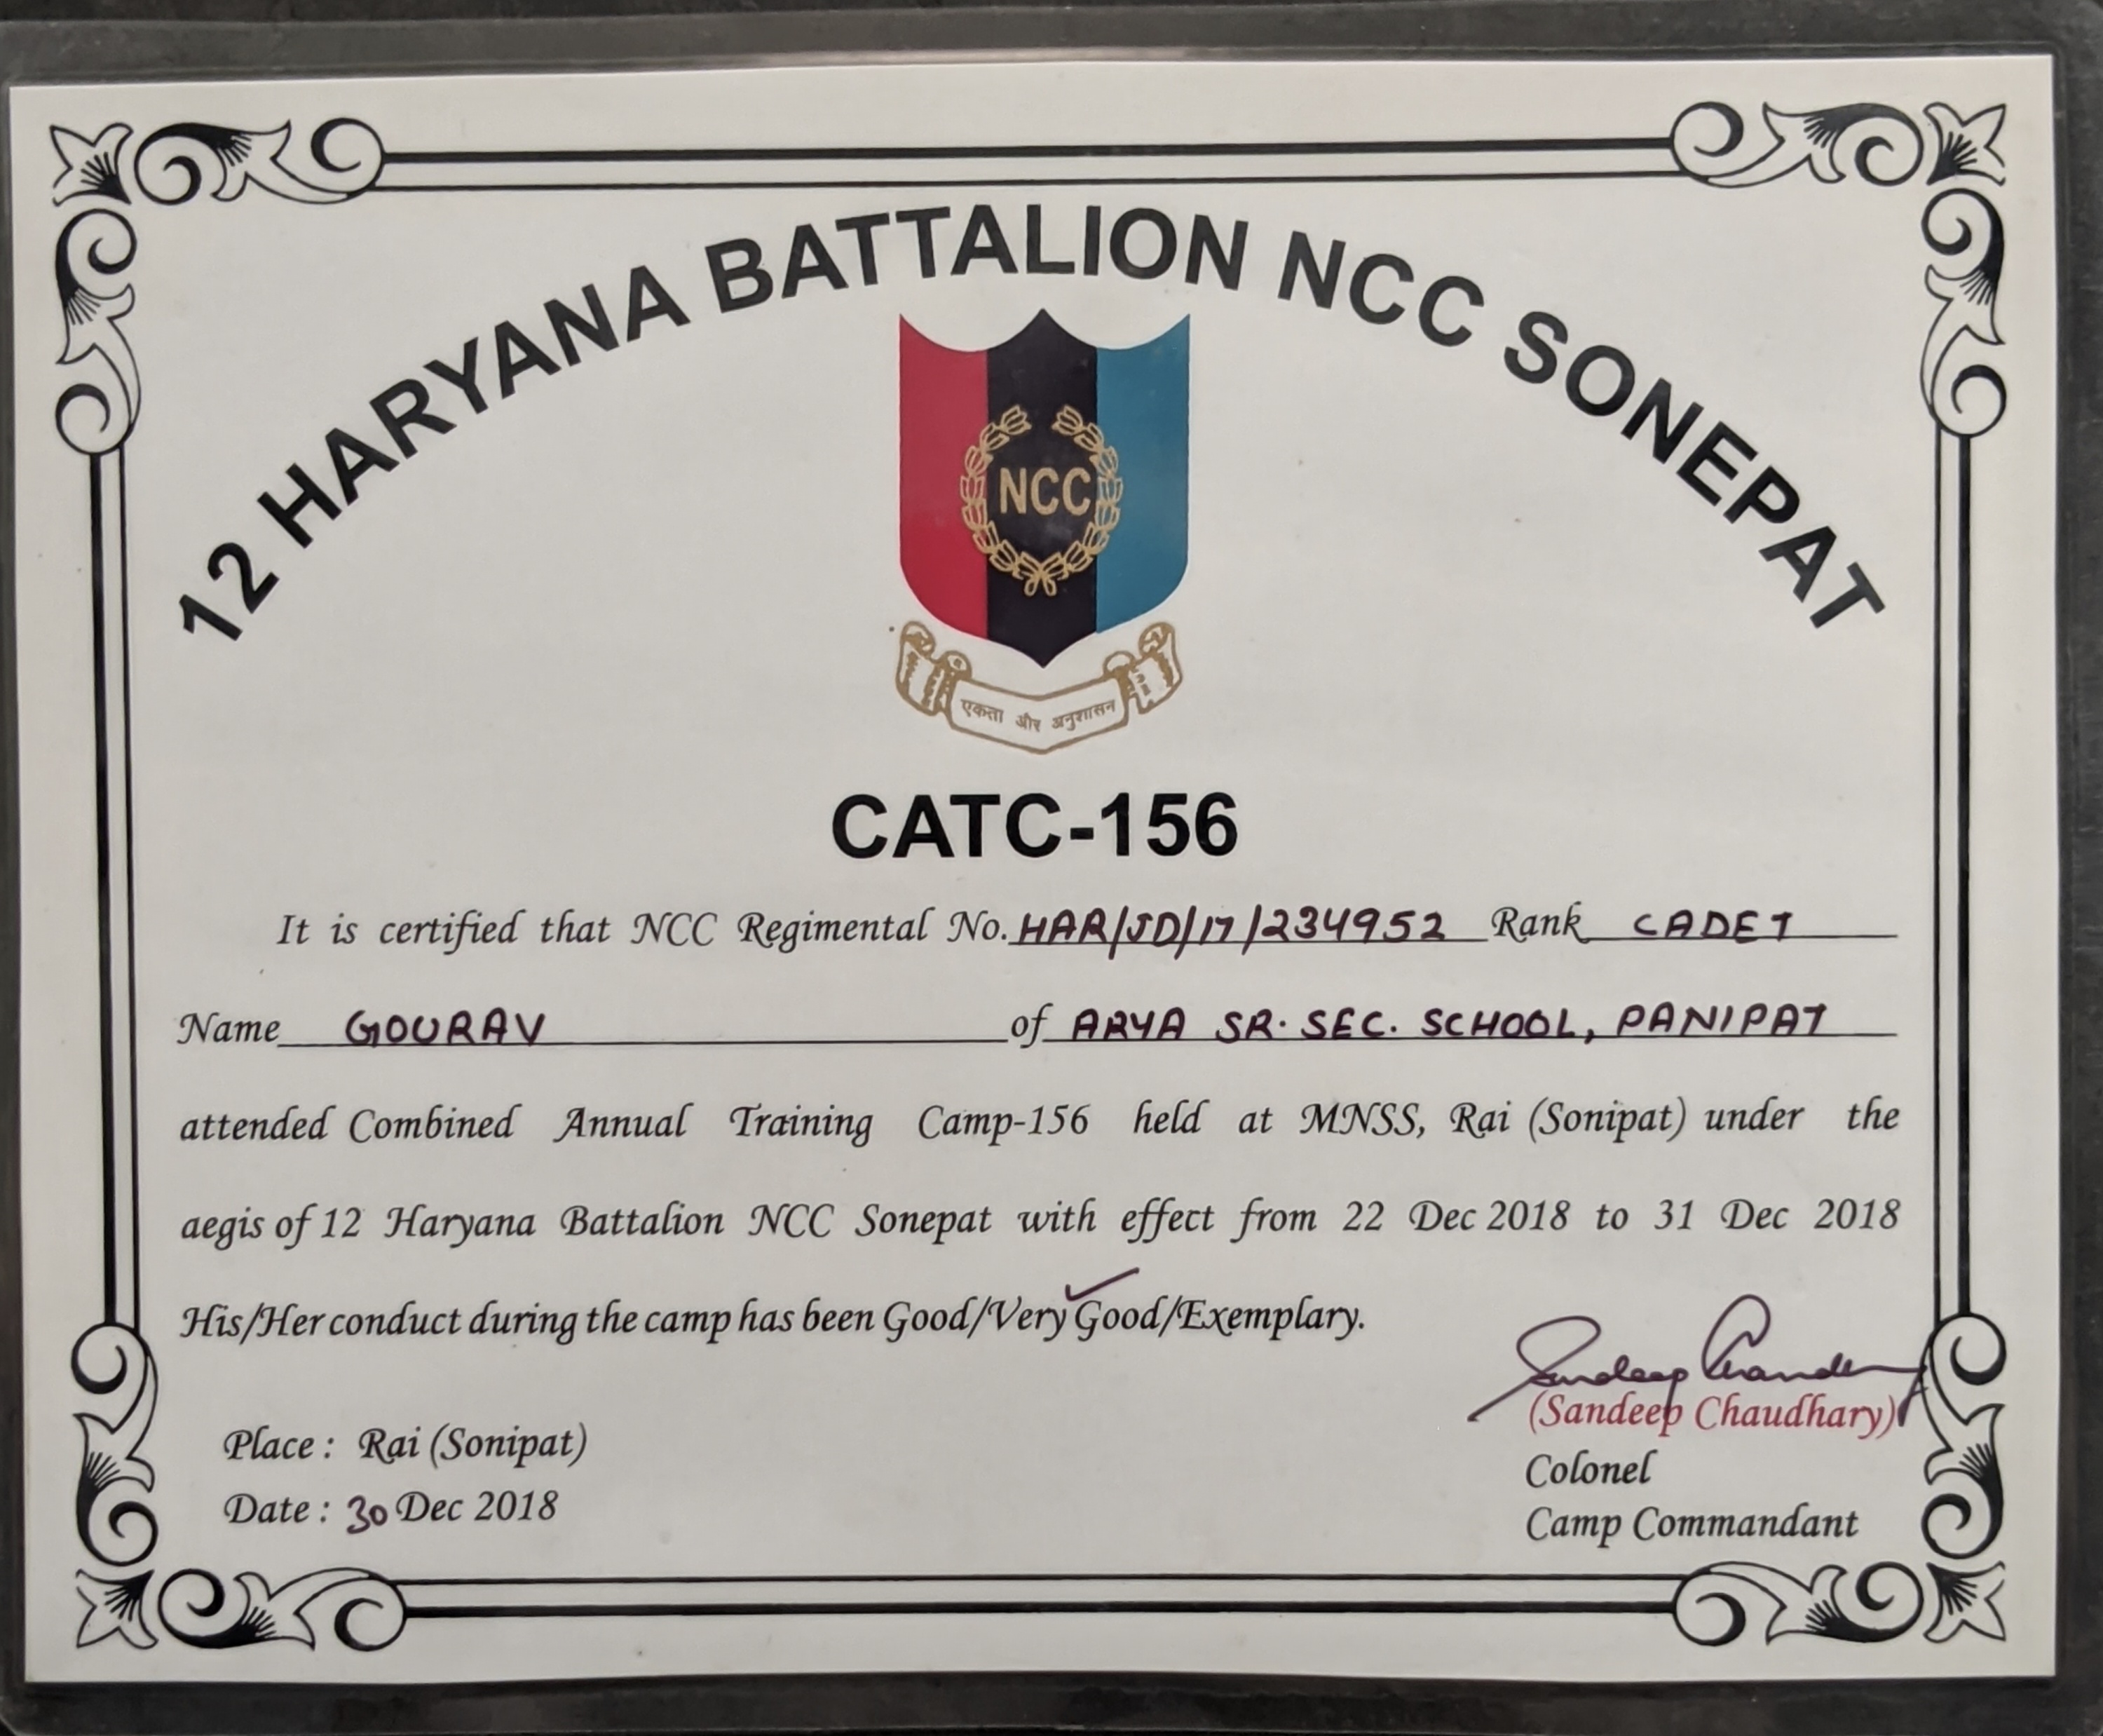 12 HARYANA BATTALION NCC SONEPAT
NCC
एकता और अनुशासन
CATC-156
It is certified that NCC Regimental No. HAR/JD/17/234952 Rank CADET
Name GOURAV of ARYA SR. SEC. SCHOOL, PANIPAT
attended Combined Annual Training Camp-156 held at MNSS, Rai (Sonipat) under the
aegis of 12 Haryana Battalion NCC Sonepat with effect from 22 Dec 2018 to 31 Dec 2018
His/Her conduct during the camp has been Good/Very Good/Exemplary.
Sandeep Chaudhary
(Sandeep Chaudhary)
Colonel
Camp Commandant
Place : Rai (Sonipat)
Date : 30 Dec 2018